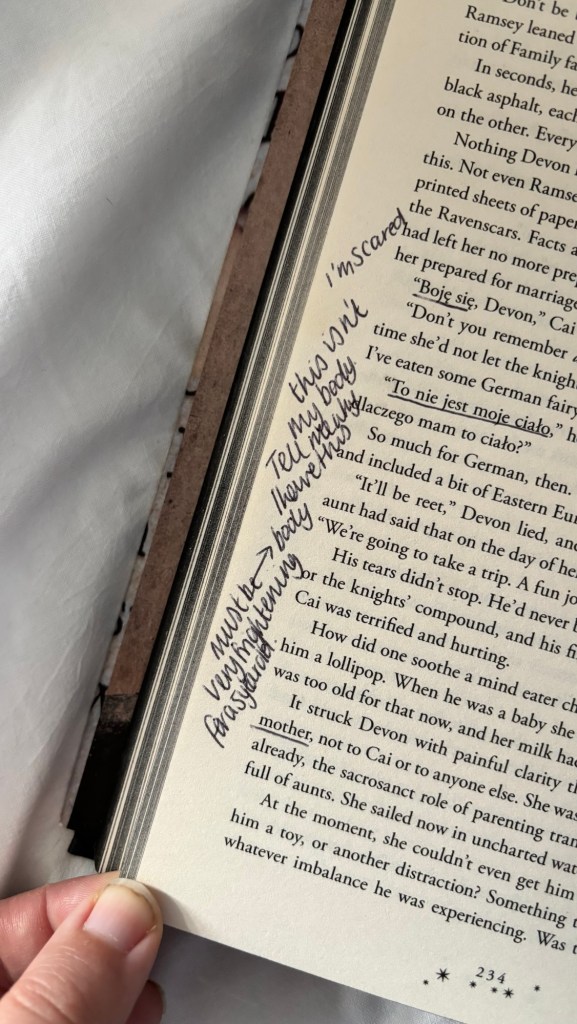 Don't be
Ramsey leaned
tion of Family fa
In seconds, he
black asphalt, each
on the other. Every
Nothing Devon
this. Not even Ramse
printed sheets of pape
the Ravenscars. Facts a
had left her no more prep
her prepared for marriage
"Boję się, Devon," Cai
"Don't you remember
time she'd not let the knigh
I've eaten some German fairy
"To nie jest moje ciało," h
dlaczego mam to ciało?"
So much for German, then.
and included a bit of Eastern Eu
"It'll be reet," Devon lied, and
aunt had said that on the day of he
"We're going to take a trip. A fun jo
His tears didn't stop. He'd never b
or the knights' compound, and his fi
Cai was terrified and hurting.
How did one soothe a mind eater ch
him a lollipop. When he was a baby she
was too old for that now, and her milk ha
It struck Devon with painful clarity th
mother, not to Cai or to anyone else. She was
already, the sacrosanct role of parenting tran
full of aunts. She sailed now in uncharted wat
At the moment, she couldn't even get him
him a toy, or another distraction? Something t
whatever imbalance he was experiencing. Was t
234
i'm scared
this isn't
my body
Tell me why
I have this
body
must be →
very frightening
for a 5 year old